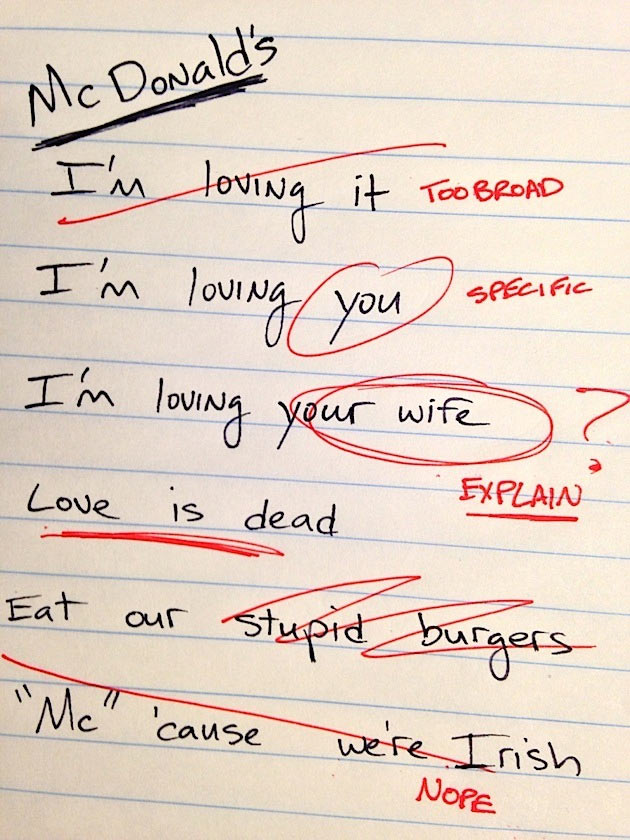 McDonald's
I'm loving it TOO BROAD
I'm loving you SPECIFIC
I'm loving your wife ?
EXPLAIN
Love is dead
Eat our stupid burgers
"Mc" 'cause we're Irish
NOPE